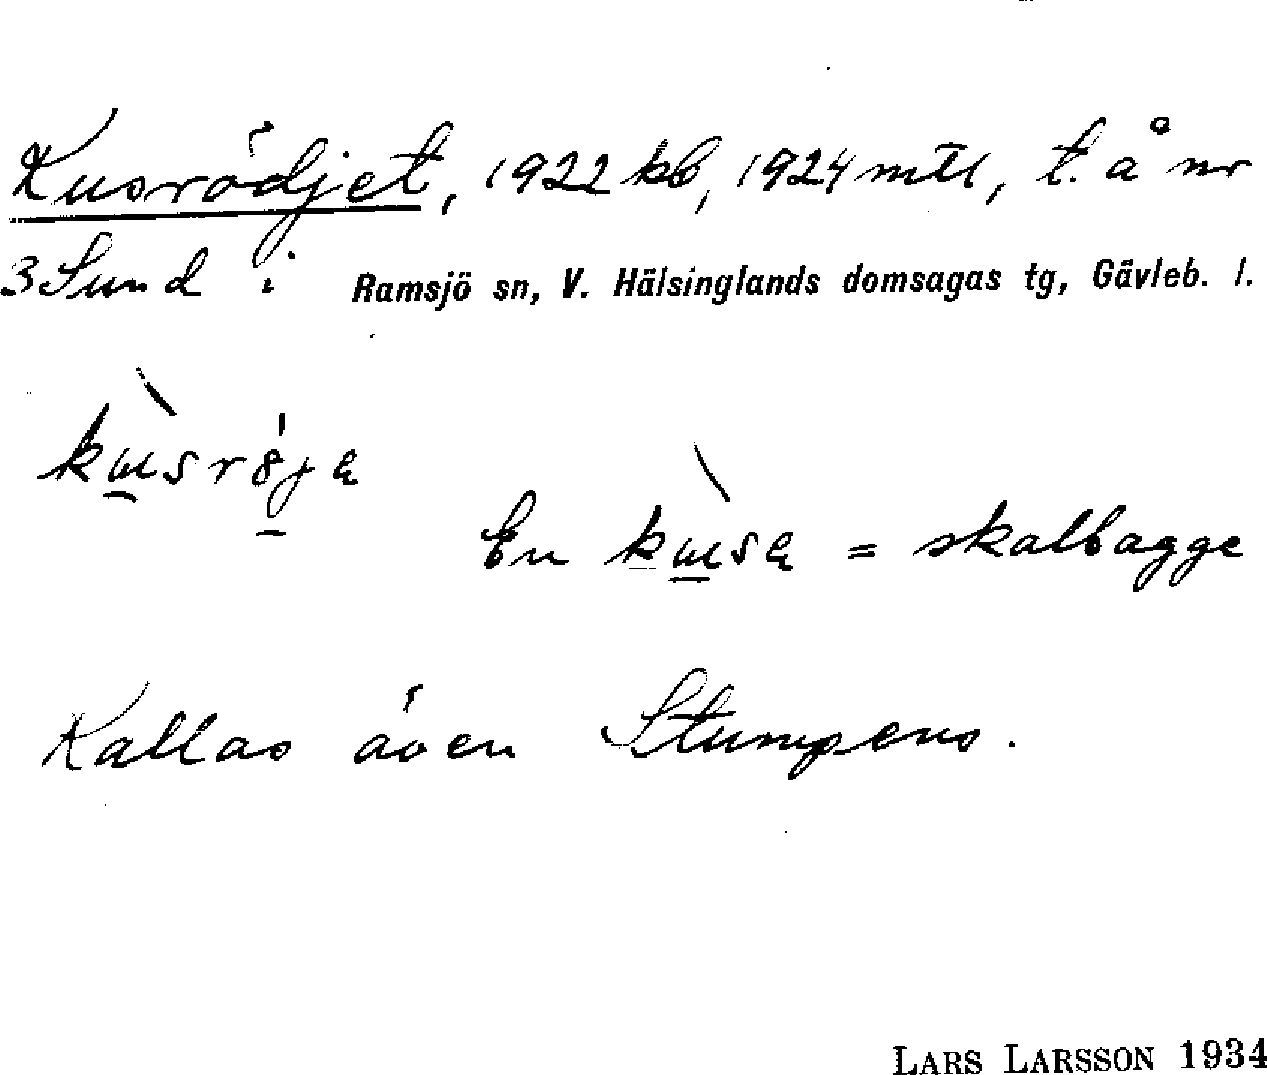 Kusrödjet, 1922 kb, 1924 mtl, t. å nr
3 Sund i Ramsjö sn, V. Hälsinglands domsagas tg, Gävleb. l.
kɯ̀sröja
En kɯ̀sa = skalbagge
Kallas även Stumpens.
LARS LARSSON 1934